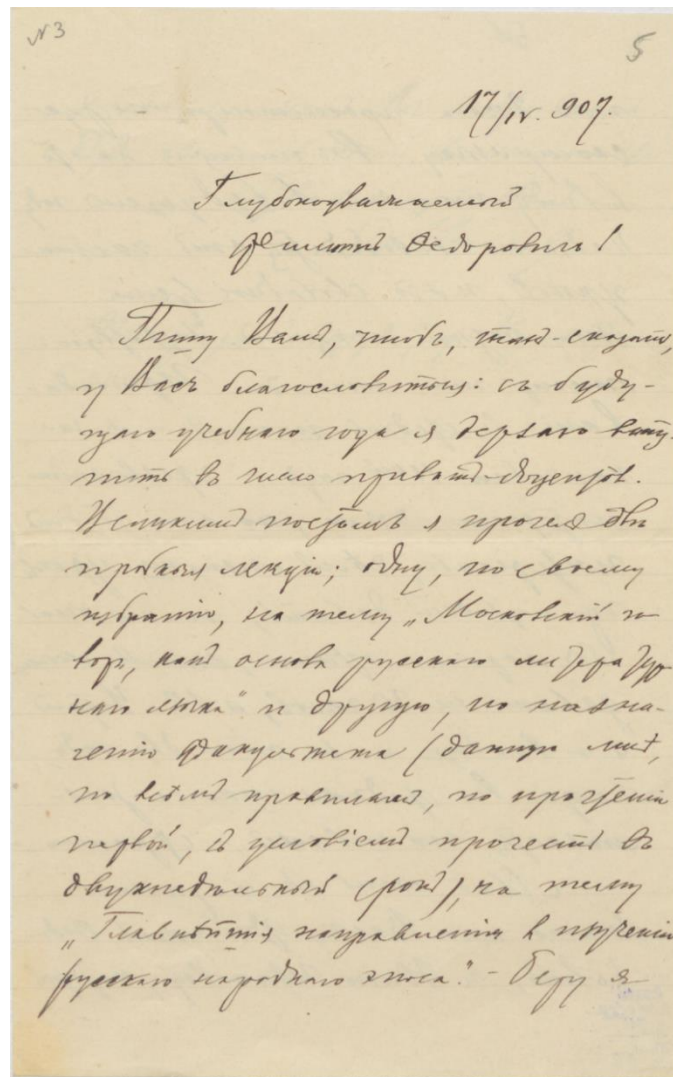 № 3
5
17/IV. 907.
Глубокоуважаемый
Филиппъ Ѳедоровичъ!
Пишу Вамъ, чтобъ, такъ-сказать,
у Васъ благословиться: съ буду-
щаго учебнаго года я дерзаю всту-
пить въ число приватъ-доцентовъ.
Великимъ постомъ я прочелъ двѣ
пробныя лекціи; одну, по своему
избранію, на тему „Московскій го-
воръ, какъ основа русскаго литератур-
наго языка" и другую, по назна-
ченію факультета (данную мнѣ,
по всѣмъ правиламъ, по прочтеніи
первой, съ условіемъ прочесть въ
двухнедѣльный срокъ), на тему
„Главнѣйшія направленія въ изученіи
русскаго народнаго эпоса." – Беру я